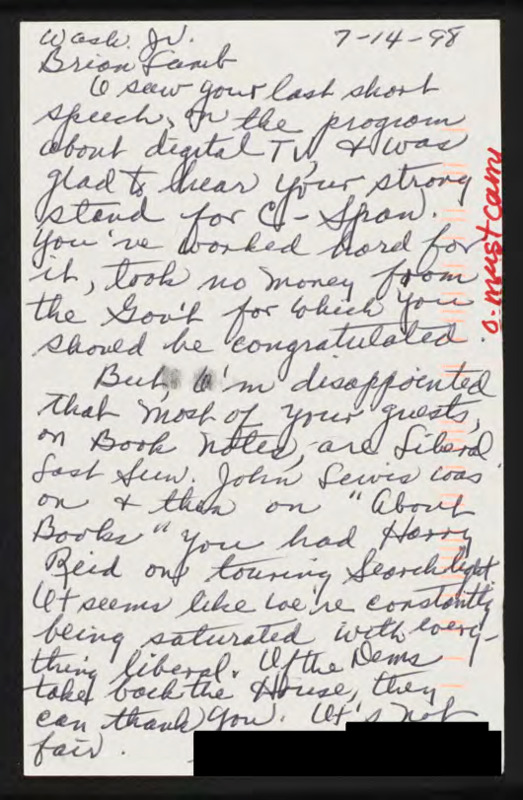 Wash. Jr. 7-14-98
Brian Lamb
I saw your last short
speech, on the program
about digital TV, & was
glad to hear your strong
stand for C-Span.
You've worked hard for
it, took no money from
the Gov't for which you
should be congratulated.
But, I'm disappointed
that most of your guests,
on Book Notes, are Liberal.
Last Sun. John Lewis was
on & then on "About
Books" you had Harry
Reid on, touring Searchlight.
It seems like we're constantly
being saturated with every-
thing liberal. If the Dems
take back the House, they
can thank you. It's not
fair.
o-must carry